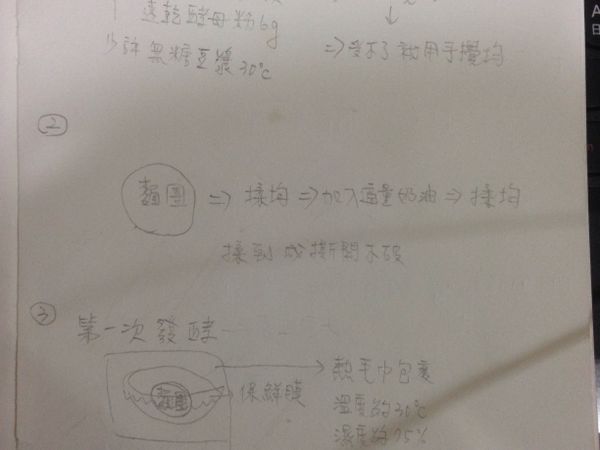 速乾酵母粉6g
少許無糖豆漿30℃
⇒受不了就用手攪均
②
麵團 ⇒ 揉均 ⇒ 加入適量奶油 ⇒ 揉均
揉到成撕開不破
③
第一次發酵
麵團
保鮮膜
熱毛巾包裹
溫度約30℃
濕度約75%